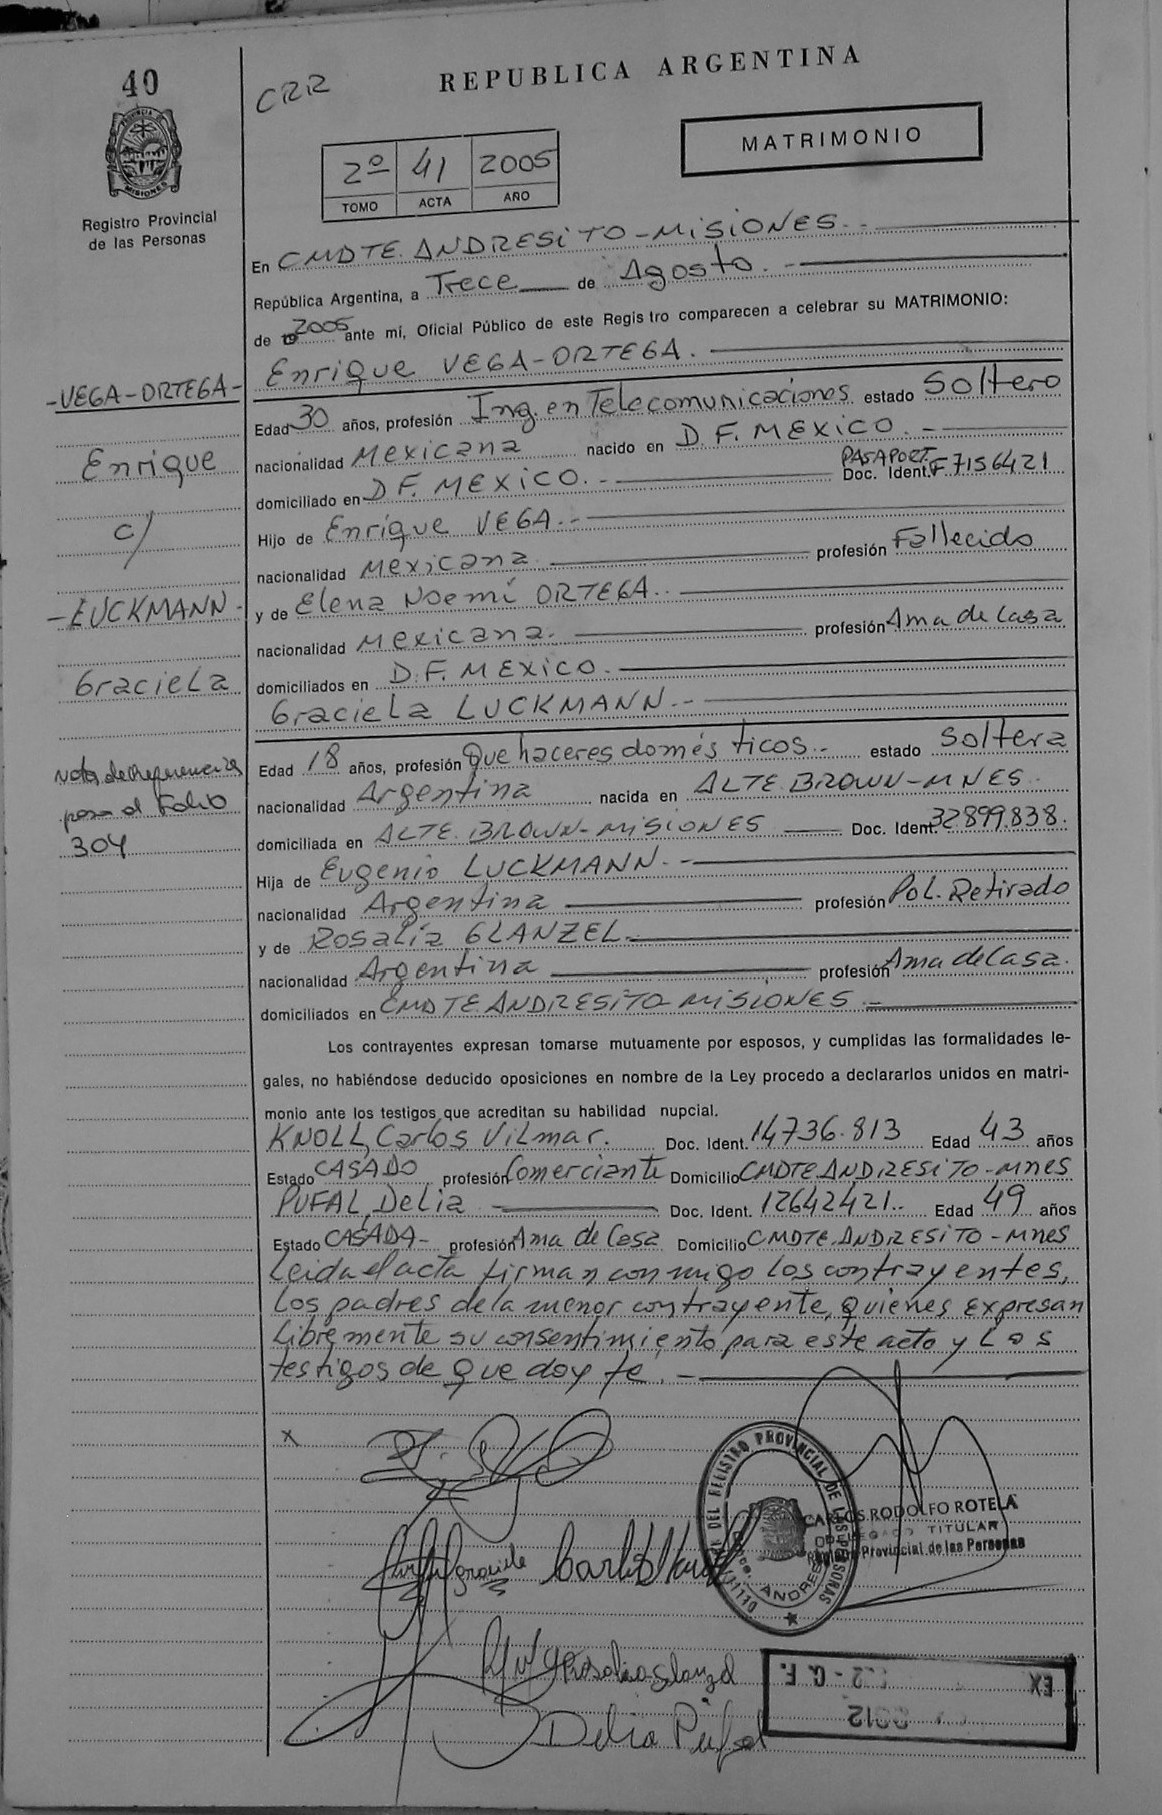 40
CRR
REPUBLICA ARGENTINA
PROVINCIA DE MISIONES
MATRIMONIO
2º 41 2005
TOMO ACTA AÑO
Registro Provincial
de las Personas
En CMDTE. ANDRESITO-MISIONES.-
República Argentina, a Trece de Agosto.-
de 2005 ante mí, Oficial Público de este Registro comparecen a celebrar su MATRIMONIO:
Enrique VEGA-ORTEGA.
-VEGA-ORTEGA-
Enrique
c/
-LUCKMANN-
Graciela
Edad 30 años, profesión Ing. en Telecomunicaciones estado Soltero
nacionalidad Mexicana nacido en D.F. MEXICO.-
domiciliado en D F. MEXICO.- PASAPORT. Doc. Ident. F7156421
Hijo de Enrique VEGA.-
nacionalidad Mexicana. profesión Fallecido
y de Elena Noemí ORTEGA.-
nacionalidad Mexicana. profesión Ama de Casa
domiciliados en D.F. MEXICO.
Graciela LUCKMANN.-
Edad 18 años, profesión Que haceres domésticos.- estado Soltera
nacionalidad Argentina nacida en ALTE. BROWN-MNES.
domiciliada en ALTE. BROWN-MISIONES Doc. Ident. 32899.838.
Hija de Eugenio LUCKMANN.-
nacionalidad Argentina profesión Pol. Retirado
y de Rosalía GLANZEL.
nacionalidad Argentina profesión Ama de Casa.
domiciliados en CMDTE. ANDRESITO-MISIONES.-
Nota de
para al Folio
304
Los contrayentes expresan tomarse mutuamente por esposos, y cumplidas las formalidades le-
gales, no habiéndose deducido oposiciones en nombre de la Ley procedo a declararlos unidos en matri-
monio ante los testigos que acreditan su habilidad nupcial.
KNOLL, Carlos Vilmar. Doc. Ident. 14736.813 Edad 43 años
Estado CASADO profesión Comerciante Domicilio CMDTE ANDRESITO-Mnes
PUFAL, Delia Doc. Ident. 12642421.- Edad 49 años
Estado CASADA- profesión Ama de Casa Domicilio CMDTE. ANDRESITO-Mnes
Leida el acta firman conmigo los contrayentes,
los padres de la menor contrayente, quienes expresan
libremente su consentimiento para este acto y los
testigos de que doy fe.-
x
DEL REGISTRO PROVINCIAL DE LAS PERSONAS
CARLOS RODOLFO ROTELA
DELEGADO TITULAR
Registro Provincial de las Personas
Rosalia Glanzel
Delia Pufal
EX
2012